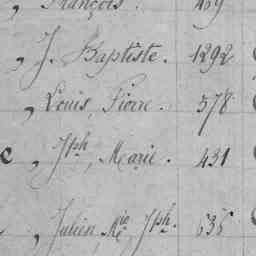 , François. 469
, J. Baptiste. 1292
, Louis, Pierre. 578
, Jph, Marie. 431
, Julien, Mie, Jph. 636